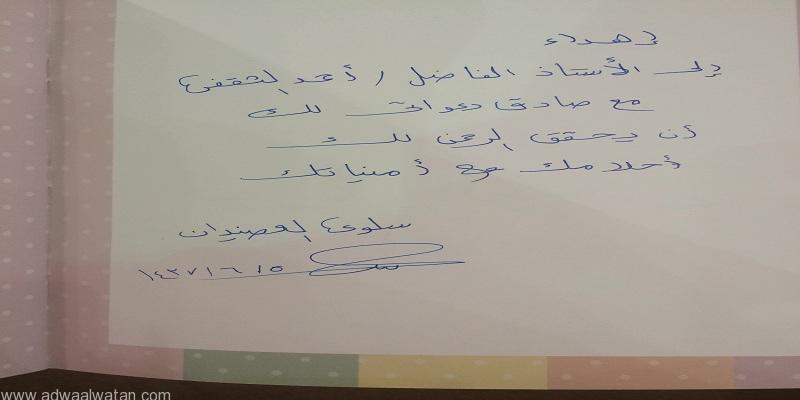 إهداء
إلى الأستاذ الفاضل / أحمد الثقفي
مع صادق دعواتي لك
أن يحقق الرحمن لك
أحلامك مع أمنياتك
سلوى العضيدان
١٤٣٧/٦/١٥
www.adwaalwatan.com